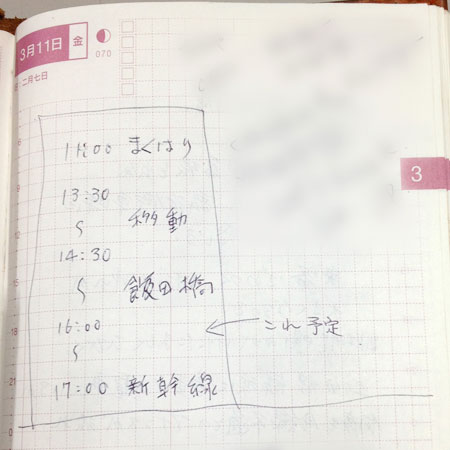 3月11日 金
070
二月七日
11:00 まくはり
13:30
〜 移動
14:30
〜 飯田橋
16:00 ← これ予定
〜
17:00 新幹線
3